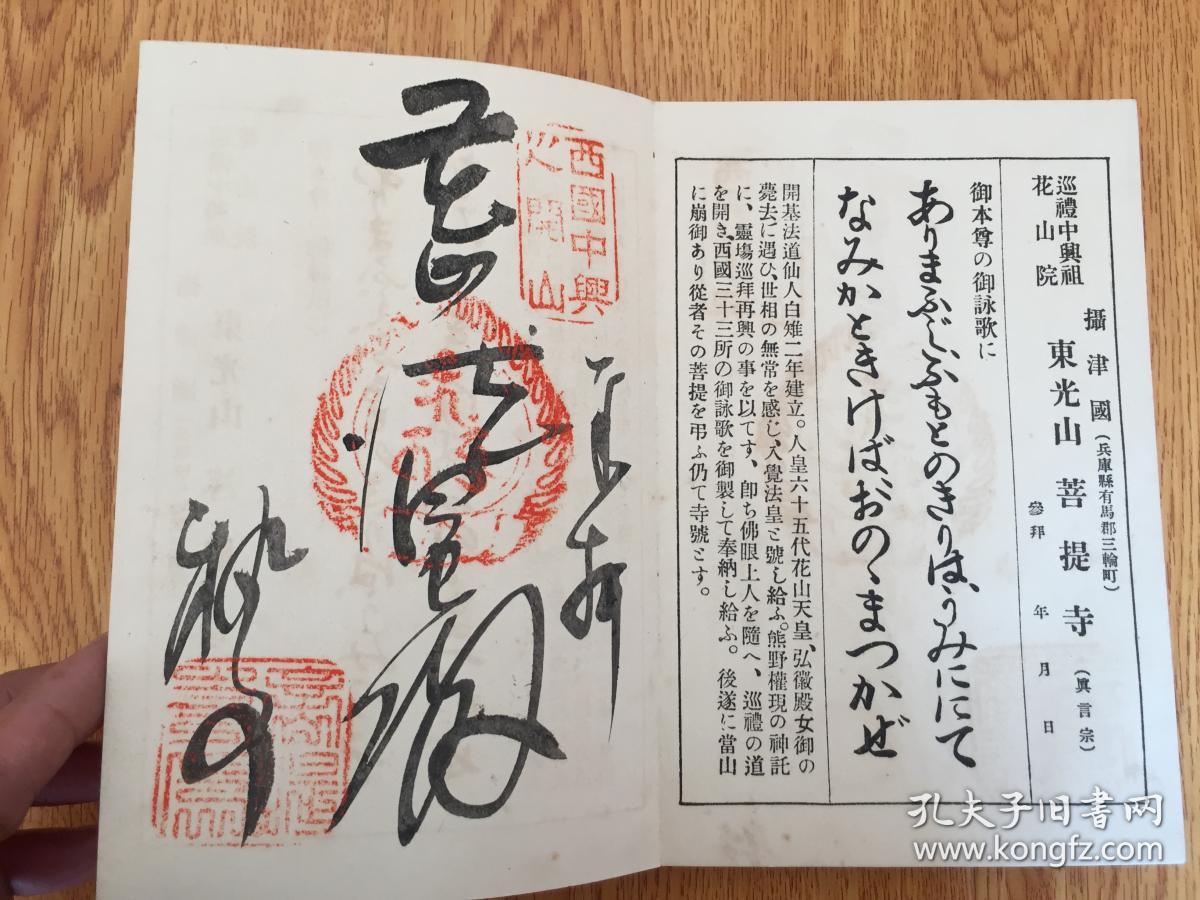 巡禮中興祖
花山院
攝津國(兵庫縣有馬郡三輪町)
東光山菩提寺(眞言宗)
參拜 年 月 日
御本尊の御詠歌に
ありまふじふもとのきりは、うみににて
なみかときけばおのゝまつかぜ
開基法道仙人白雉二年建立。人皇六十五代花山天皇、弘徽殿女御の
薨去に遇ひ、世相の無常を感じ、入覺法皇と號し給ふ。熊野權現の神託
に、靈塲巡拜再興の事を以てす、卽ち佛眼上人を隨へ、巡禮の道
を開き、西國三十三所の御詠歌を御製して奉納し給ふ。後遂に當山
に崩御あり從者その菩提を弔ふ仍て寺號とす。
西國中興
開山
孔夫子旧书网
www.kongfz.com